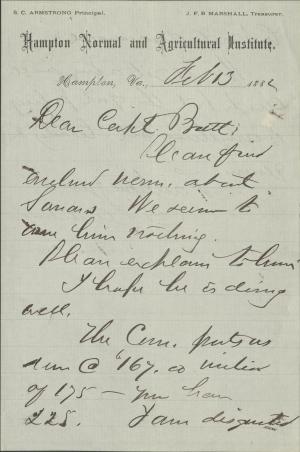 S. C. ARMSTRONG Principal. J. F. B. MARSHALL, Treasurer.
Hampton Normal and Agricultural Institute.
Hampton, Va., Feb 13 1882
Dear Capt Pratt:
Please find
enclosed mem. about
We seem to
owe him nothing.
Please explain to him
I hope he is doing
well.
The Com. puts us
down @ $167. 
of 175 — you have
225. I am disgusted